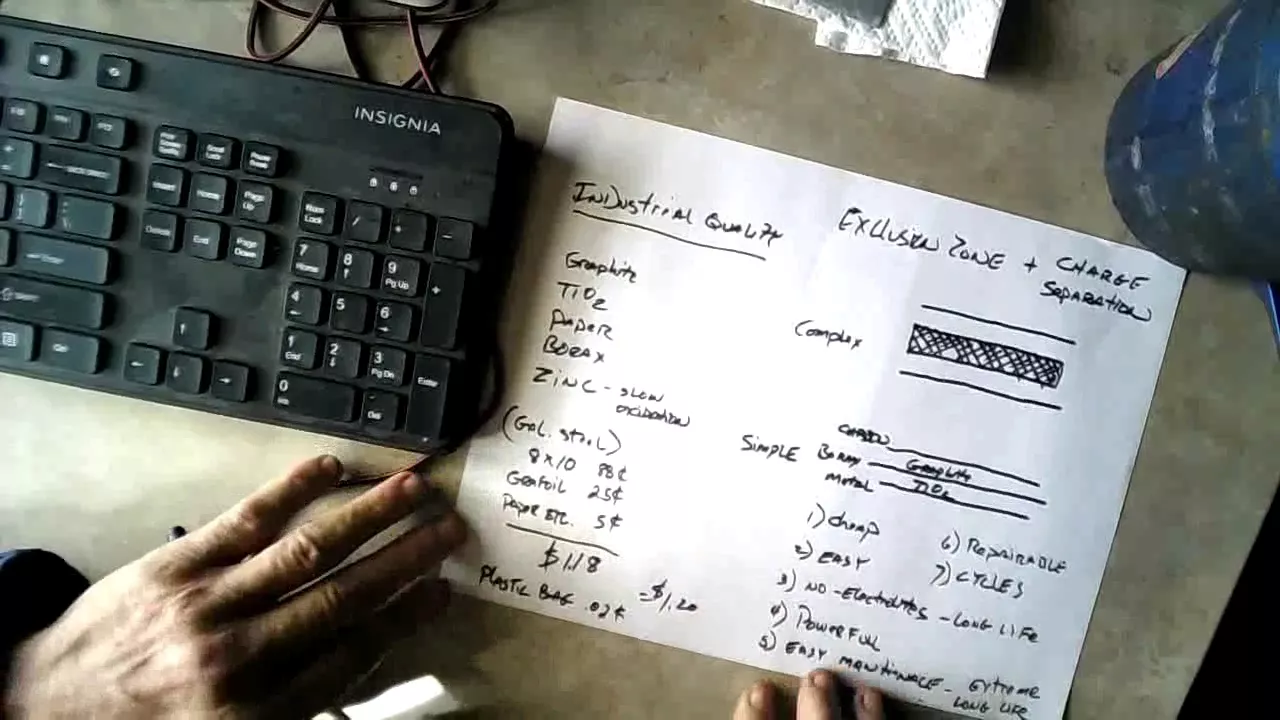 INSIGNIA
Num Lock
/
7 Home
8
9 Pg Up
+
4
5
6
1 End
2
3 Pg Dn
Enter
0 Ins
Del
Insert
Home
Page Up
Delete
End
Page Down
INDUSTRIAL QUALITY
Graphite
TiO2
Paper
BORAX
ZINC - SLOW
OXIDATION
(GAL. STEEL)
8X10 88¢
GRAFOIL 25¢
PAPER ETC. 5¢
$1.18
PLASTIC BAG .02¢ =$1.20
EXCLUSION ZONE + CHARGE
SEPARATION
Complex
SIMPLE
CARBON
BORAX
Graphite
METAL
TiO2
1) cheap
2) EASY
3) NO-Electrolites - LONG LIFE
4) POWERFUL
5) EASY MANTINANCE - EXTREME
LONG LIFE
6) REPAIRABLE
7) CYCLES